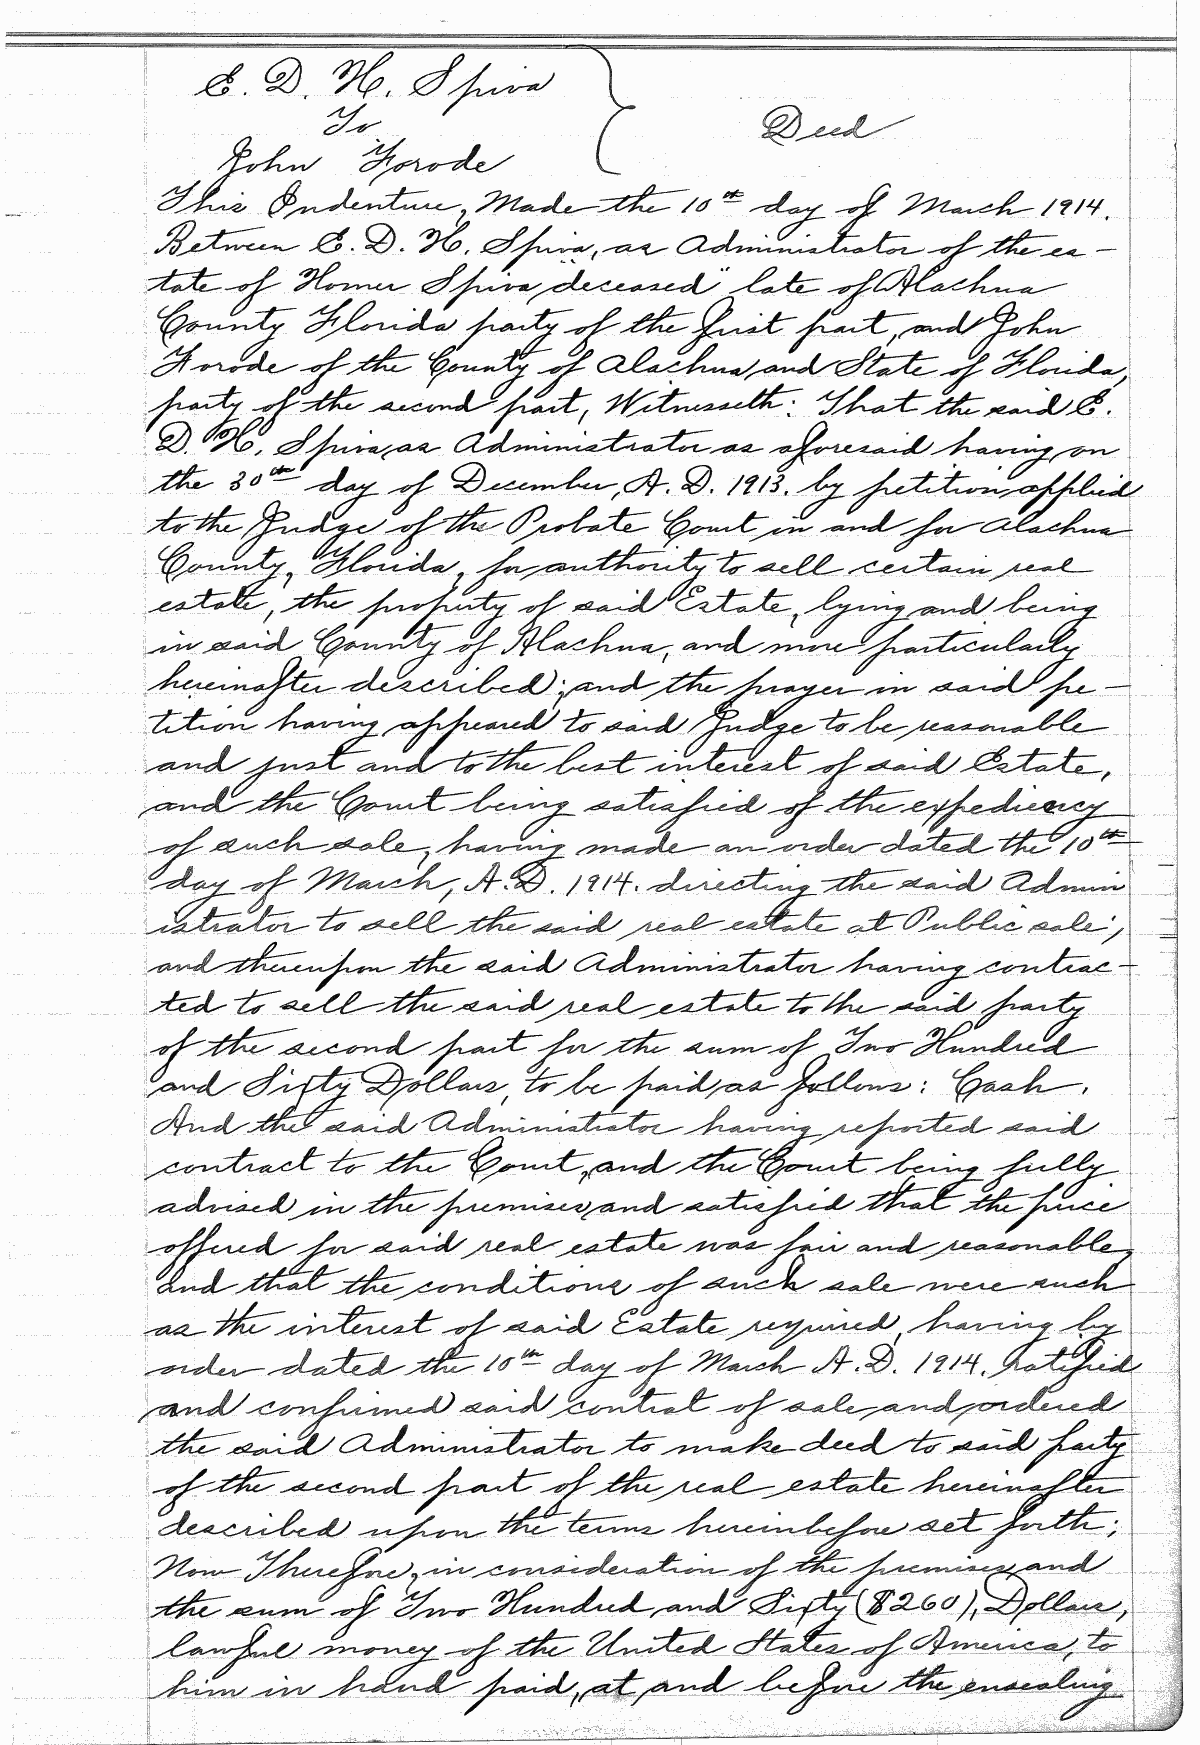 E. D. H. Spiva
To
John Forode
Deed
This Indenture, Made the 10th day of March 1914.
Between E. D. H. Spiva, as Administrator of the es-
tate of Homer Spiva "deceased" late of Alachua
County Florida party of the first part, and John
Forode of the County of Alachua, and State of Florida,
party of the second part, Witnesseth: That the said E.
D. H. Spiva, as Administrator as aforesaid having on
the 30th day of December, A. D. 1913. by petition, applied
to the Judge of the Probate Court in and for Alachua
County, Florida, for authority to sell certain real
estate, the property of said Estate, lying and being
in said County of Alachua, and more particularly
hereinafter described; and the prayer in said pe-
tition having appeared to said Judge to be reasonable
and just and to the best interest of said Estate,
and the Court being satisfied of the expediency
of such sale, having made an order dated the 10th
day of March, A. D. 1914. directing the said Admin
istrator to sell the said real estate at Public sale;
and thereupon the said Administrator having contrac-
ted to sell the said real estate to the said party
of the second part for the sum of Two Hundred
and Sixty Dollars, to be paid, as follows: Cash.
And the said Administrator having reported said
contract to the Court, and the Court being fully
advised in the premises, and satisfied that the price
offered for said real estate was fair and reasonable,
and that the conditions of such sale were such
as the interest of said Estate required, having by
order dated the 10th day of March A. D. 1914. ratified
and confirmed said contrat of sale, and ordered
the said Administrator to make deed to said party
of the second part of the real estate hereinafter
described upon the terms hereinbefore set forth;
Now Therefore, in consideration of the premises, and
the sum of Two Hundred and Sixty ($260), Dollars,
lawful money of the United States of America, to
him in hand paid, at and before the ensealing